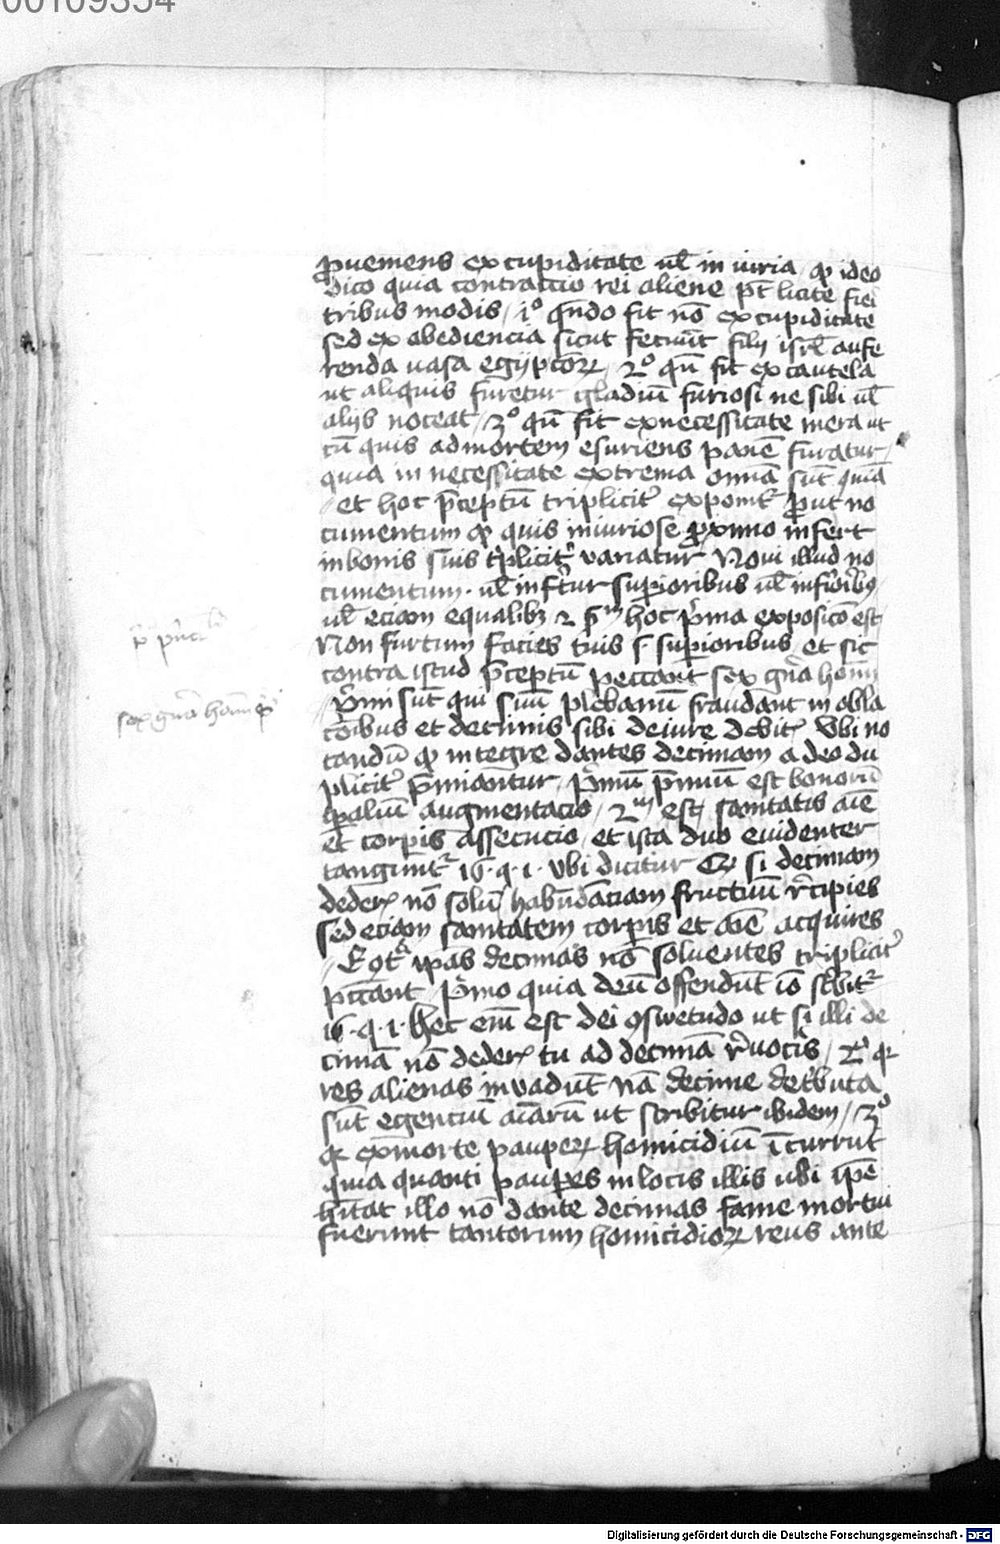 00109354
ꝓueniens ex cupiditate uł in iuria ꝙ ideo
dico quia contractio rei aliene pt̄ licite fiei
tribus modis / i° qn̄do fit nō ex cupiditate
sed ex obediencia sicut fecerūt filij isrl̄ aufe
renda uasa egijpcioꝝ / 2° qn̄ fit ex cautela
ut aliquis furetur gladiū furiosi ne sibi uł
alijs noceat / 3° qn̄ fit ex necessitate mera ut
cū quis ad mortem esuriens panē furatur /
quia in necessitate extrema omīa sūt
/ et hoc p̄ceptū triplicit̾ exponit̾ ꝓut no
cumentum ꝙ quis iniuriose ꝓximo infert
in bonis suis tͥplicit̾ variatur Noui illud no
cumentum . uł infert̾ur suꝑioribus uł inferioribꝫ
uł eciam equalibꝫ ⁊ sm̄ hoc pͥma exposicō est
Non furtum facies tuis s. suꝑioribus et sic
contra istud p̄ceptū peccant sex gn̄a homī
pͥmi sūt qui suū plebanū fraudant in obla
cōibus et decimis sibi de iure debit̾ Vbi no
tandū ꝙ integre dantes decimam a deo du
plicit̾ p̄miantur / pͥmū p̄miū est bonorū
tꝑaliū augmentacio / 2m est sanitatis aīe
et corꝑis assecucio et ista duo euidenter
tangunt̾ 16 . q . 1 . vbi dicitur Ꝙ si decimam
dederis nō solū habūdāciam fructuū recipies
sed eciam sanitatem corꝑis et aīe acquires
/ Econtͣ ip̄as decimas nō soluentes triplicit̾
peccant / pͥmo quia deū offendūt iō scͥbit̾
16 . q . 1 . hec enī est dei ꝯswetudo ut si illi de
cimā nō dederis tu ad decimā reuocēs / 2° qꝛ
res alienas inuadūt nā decime detͥbuta
sūt egenciū aīarū ut scribitur ibidem / 3°
qꝛ ex morte pauperꝝ homicidiū īcurrūt
quia quanti pauꝑes in locis illis ubi ip̄e
hītat illo nō dante decimas fame mortui
fuerunt tantorum homicidioꝝ reus ante
sex gn̄a homī
Digitalisierung gefördert durch die Deutsche Forschungsgemeinschaft - DFG